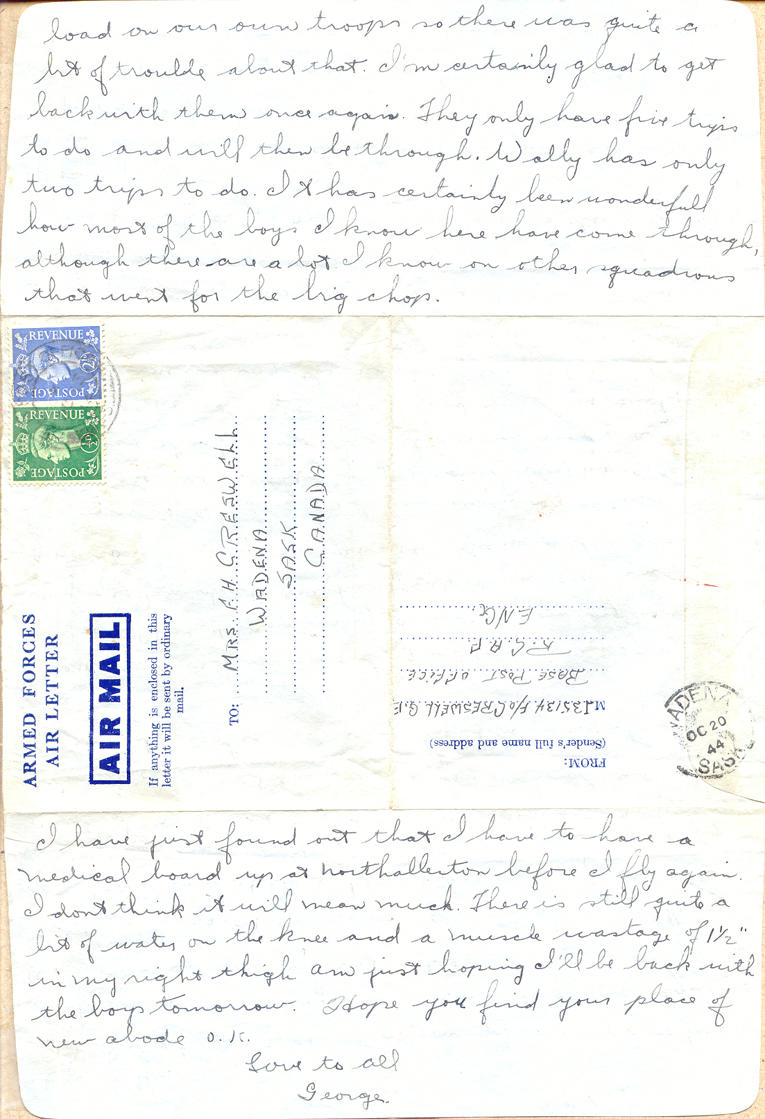 load on our own troops so there was quite a
bit of trouble about that. I'm certainly glad to get
back with them once again. They only have five trips
to do and will then be through. Wally has only
two trips to do. It has certainly been wonderfull
how most of the boys I know here have come through,
although there are a lot I know on other squadrons
that went for the big chop.
REVENUE
2½D
POSTAGE
REVENUE
½D
POSTAGE
ARMED FORCES
AIR LETTER
AIR MAIL
If anything is enclosed in this
letter it will be sent by ordinary
mail.
TO: MRS. A.H. CRESWELL
WADENA
SASK
CANADA
FROM:
(Sender's full name and address)
F/O CRESWELL G.E
BASE POST OFFICE
R.C.A.F.
ENG.
WADENA
OC 20
44
SASK
I have just found out that I have to have a
medical board up at Northallerton before I fly again.
I dont think it will mean much. There is still quite a
bit of water on the knee and a muscle wastage of 1½"
in my right thigh am just hoping I'll be back with
the boys tomorrow. Hope you find your place of
new abode O.K.
Love to all
George.